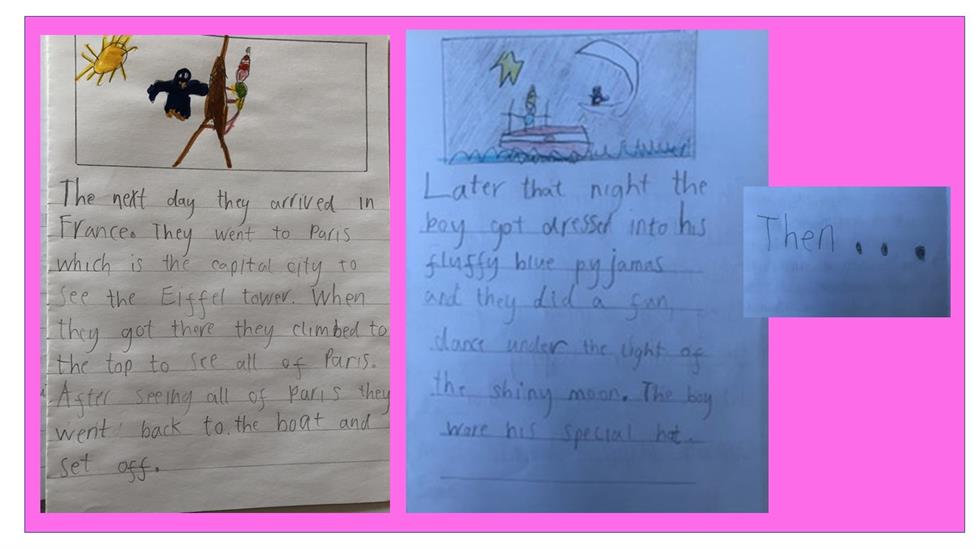 The next day they arrived in
France. They went to Paris
which is the capital city to
see the Eiffel tower. When
they got there they climbed to
the top to see all of Paris.
After seeing all of Paris they
went back to the boat and
set off.
Later that night the
boy got dressed into his
fluffy blue pyjamas
and they did a fun
dance under the light of
the shiny moon. The boy
wore his special hat.
Then...